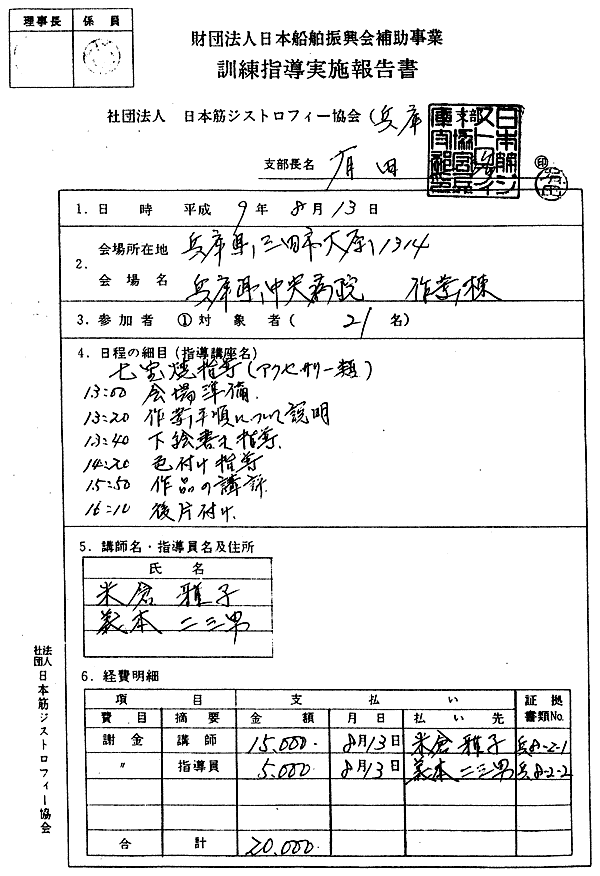 理事長 係員
財団法人日本船舶振興会補助事業
訓練指導実施報告書
社団法人 日本筋ジストロフィー協会(兵庫 支部)
支部長名
印
1. 日 時 平成 9年 8月 13日
2. 会場所在地 兵庫県三田市大原1314
会場名 兵庫県中央病院 作業棟
3. 参加者 ①対象者( 21 名)
4. 日程の細目(指導講座名)
七宝焼指導(アクセサリー類)
13:00 会場準備
13:20 作業手順について説明
13:40 下絵書き指導
14:20 色付け指導
15:50 作品の講評
16:10 後片付け
5. 講師名・指導員名及住所
氏 名
米倉 雅子
二三男
6. 経費明細
項 目 支 払 い 証拠書類No.
費目 摘要 金額 月日 払い先
謝金 講師 15,000 8月13日 米倉 雅子 兵8-2-1
〃 指導員 5,000 8月13日 二三男 兵8-2-2
合 計 20,000
社団法人 日本筋ジストロフィー協会